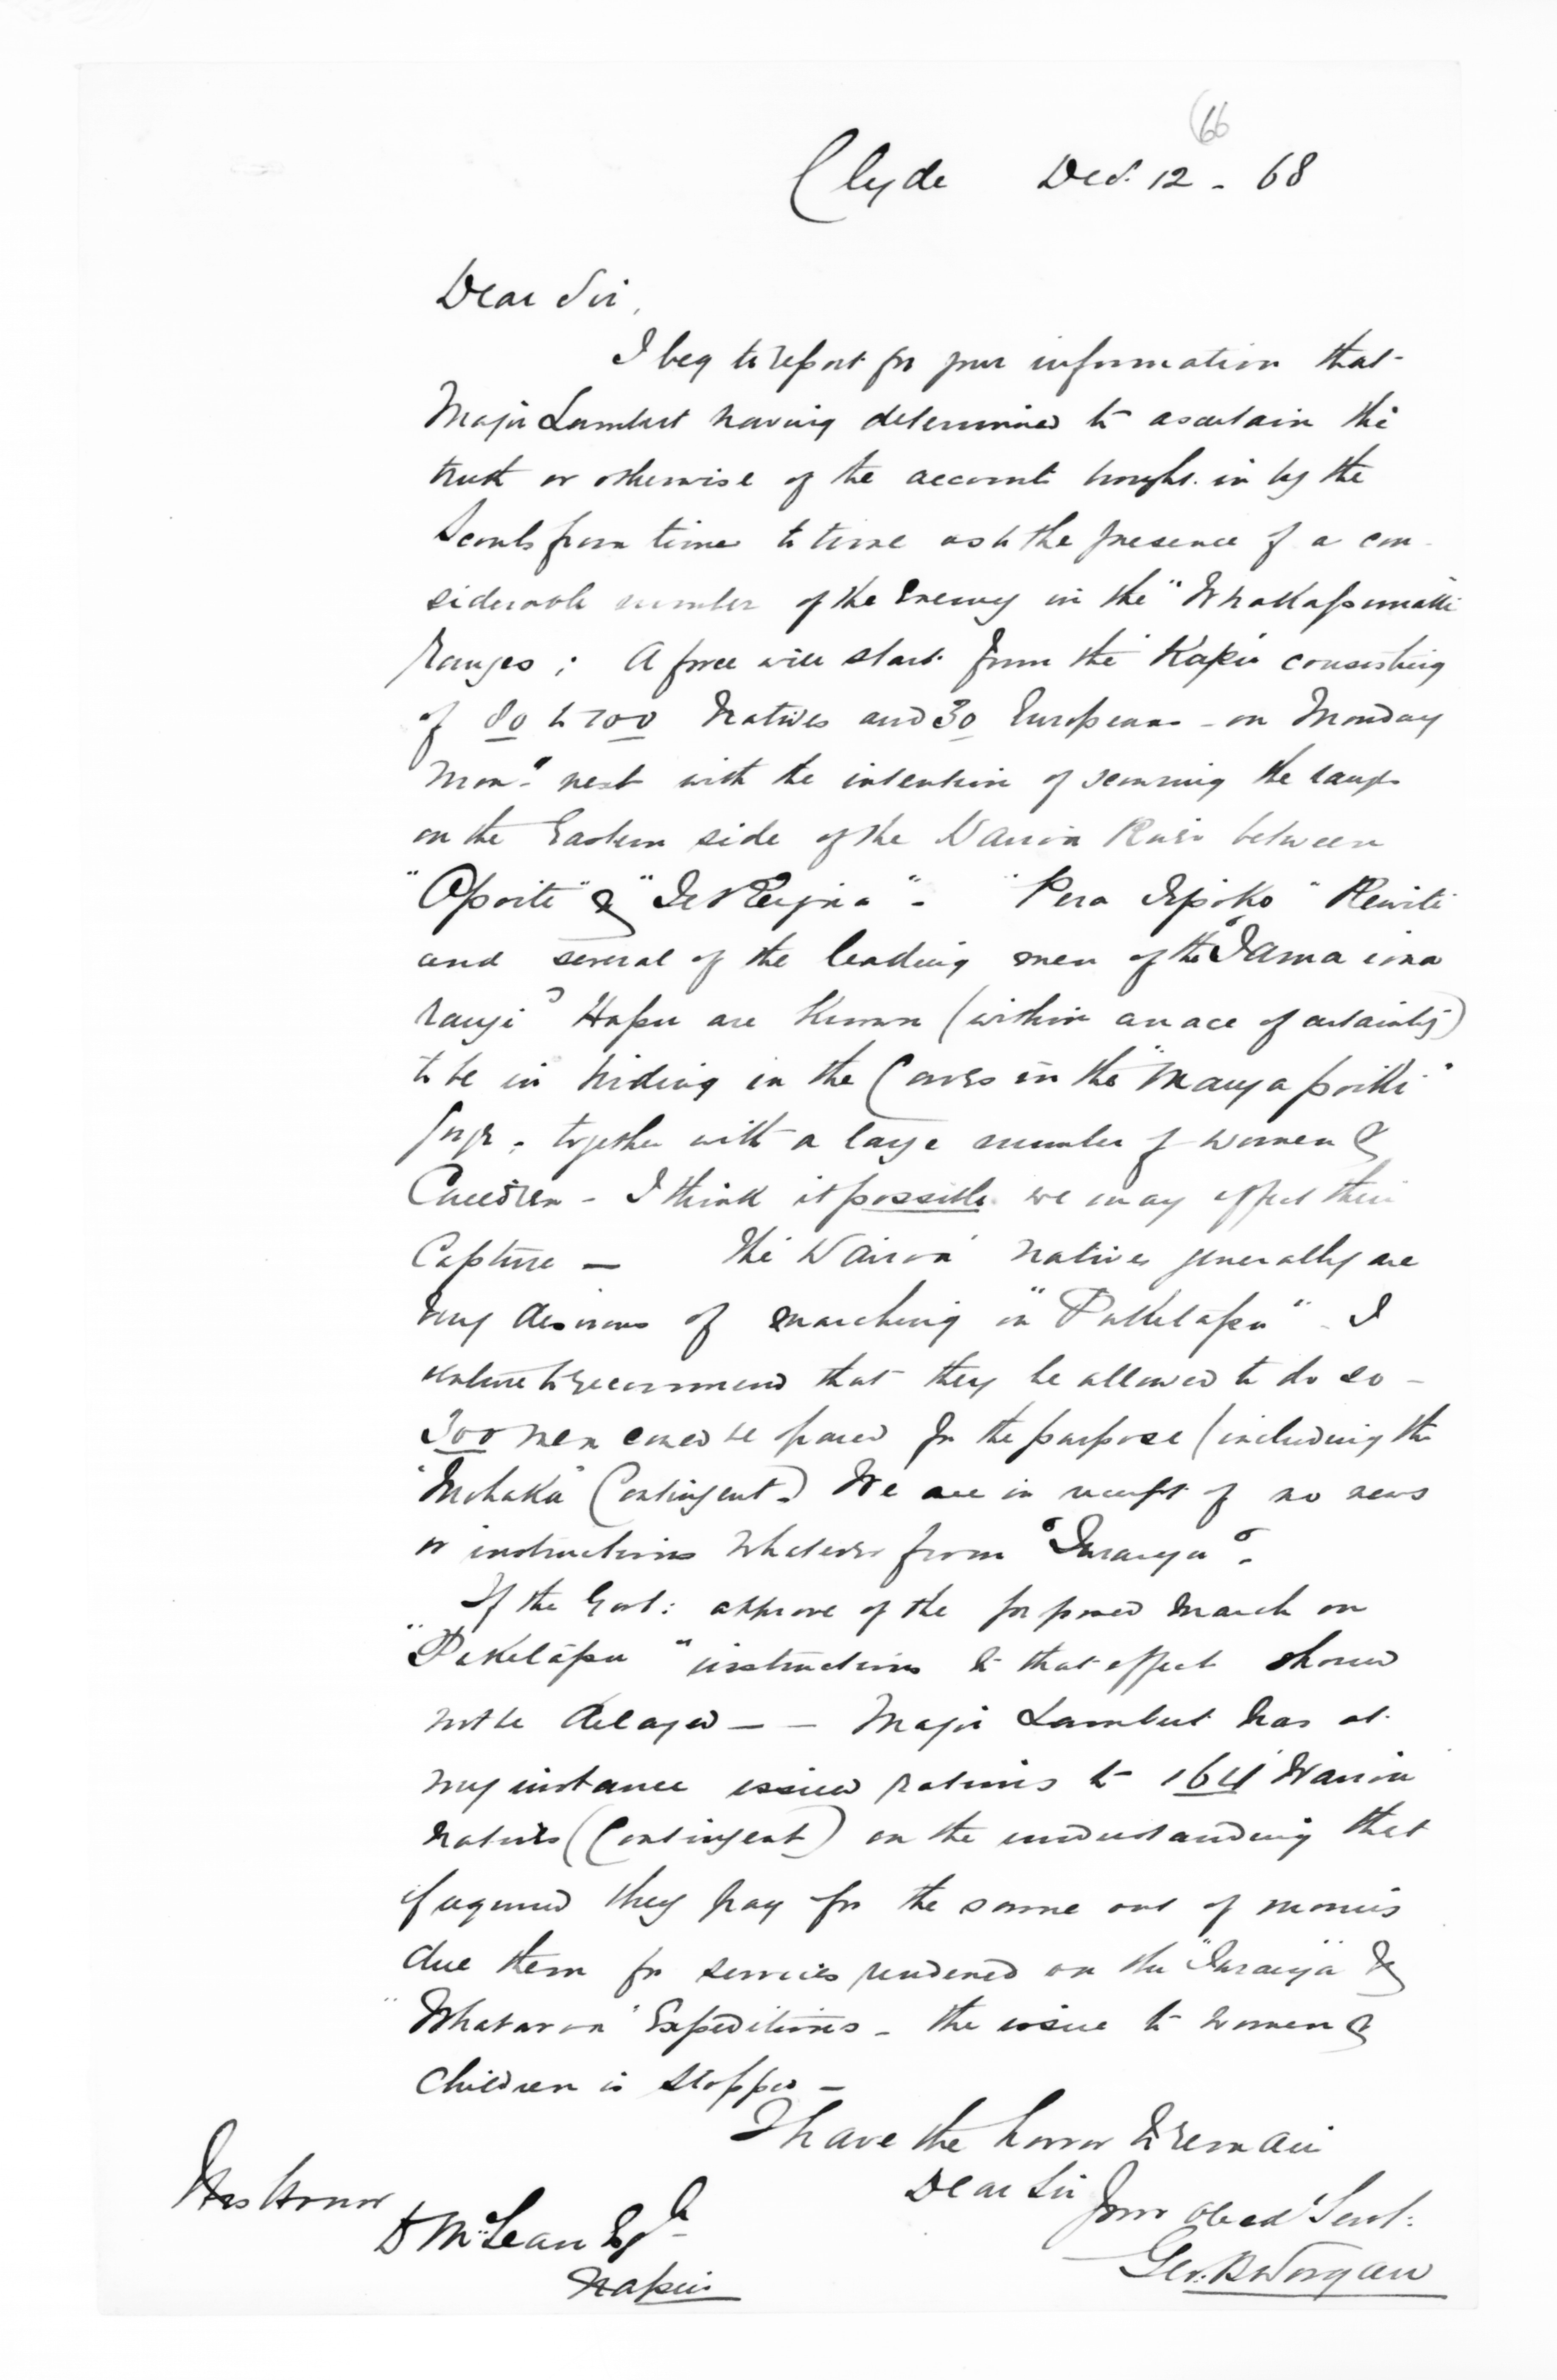 66
Clyde Decr. 12 - 68
Dear Sir,
I beg to report for your information that
Major Lambert having determined to ascertain the
truth or otherwise of the accounts brought in by the
Scouts from time to time as to the presence of a con-
siderable number of the Enemy in the "Whakapunaki
ranges; A force will start from the Kapu consisting
of 80 to 100 Natives and 30 Europeans - on Monday
Morng next with the intention of scouring the range
on the Eastern side of the Wairoa River between
"Opoiti" & "Te Reinga" - "Pera Tipoko" Rewiti
and several of the leading men of the "Tama iona
rangi" Hapu are known (within an ace of certainty)
to be in hiding in the Caves in the "Mangapoiki"
gorge, together with a large number of women &
Children - I think it possible we may effect their
Capture — The Wairoa natives generally are
very desirous of marching on "Puketapu" - I
venture to recommend that they be allowed to do so -
300 men could be spared for the purpose (including the
"Mohaka" Contingent.) We are in receipt of no news
or instructions whatever from "Turanga".
If the Govt: approve of the proposed march on
"Puketapu" instructions to that effect should
not be delayed — — Major Lambert has at
my instance issued rations to 164 Wairoa
natives (Contingent) on the understanding that
if required they pay for the same out of monies
due them for services rendered on the "Turanga" &
"Whataroa" Expeditions - the issue to women &
children is stopped -
I have the honor to remain
Dear Sir
Your obedt Servt:
Geo. B Worgan
His Honor
D McLean Esqr
Napier